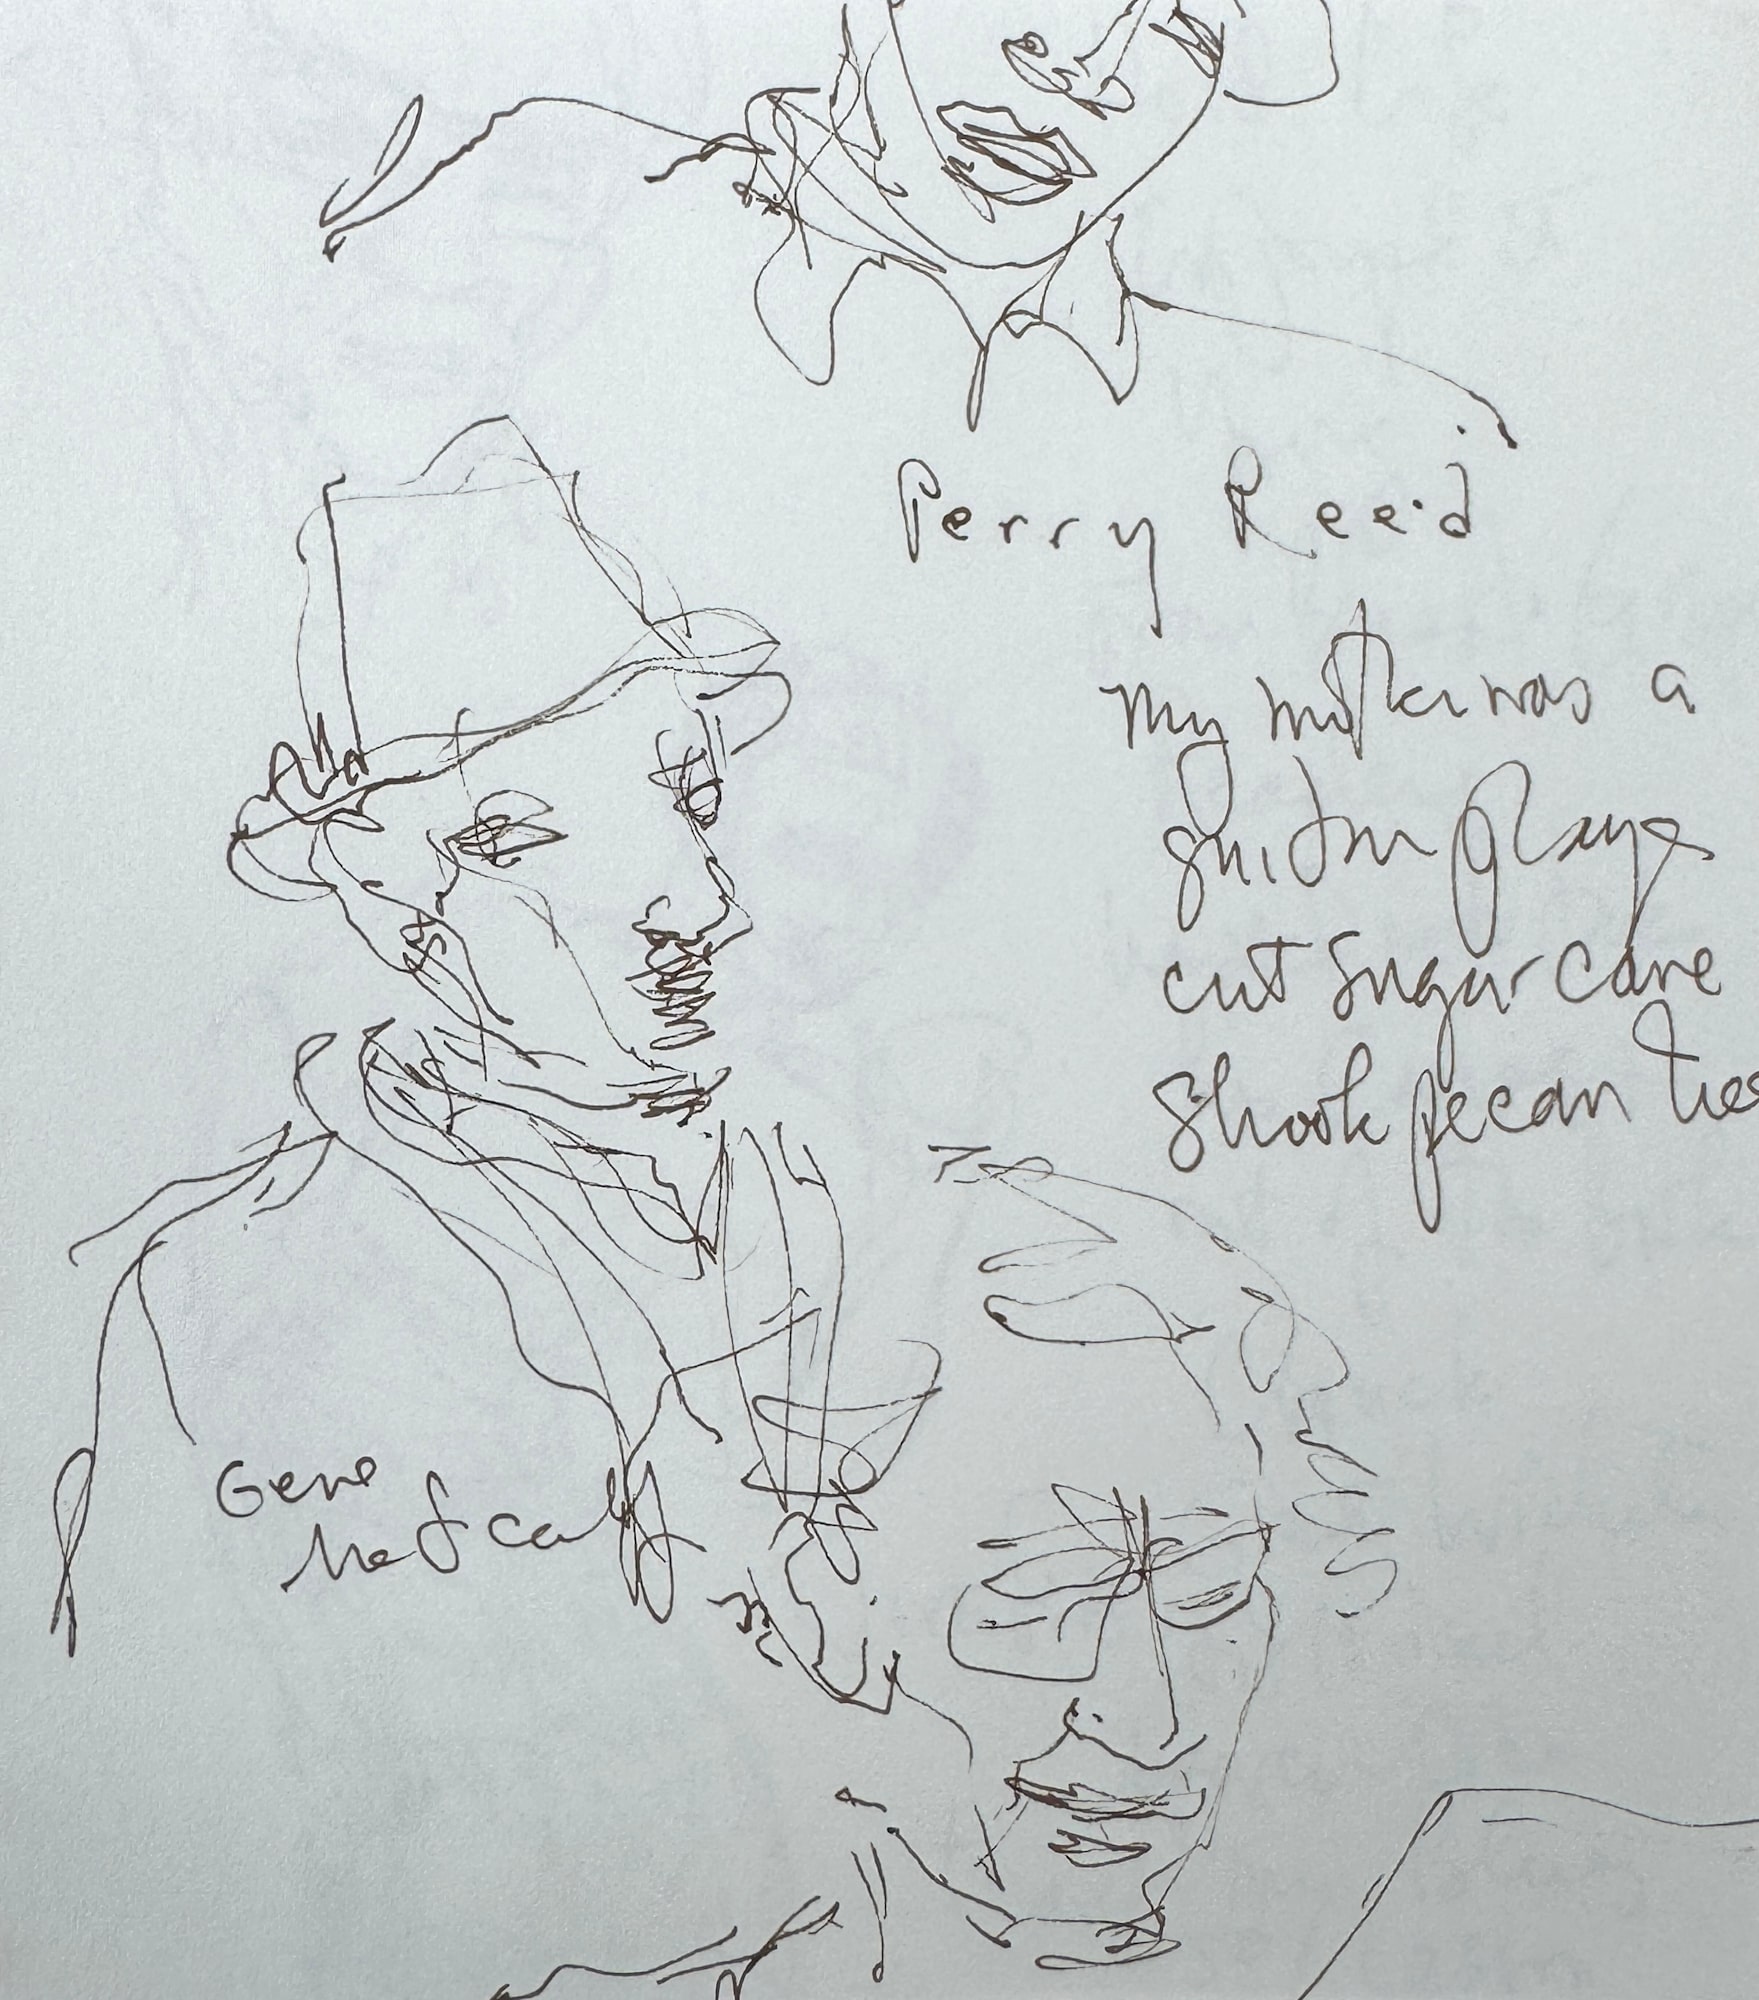 Perry Reed
my mother was a
guitar player
cut sugar cane
shook pecan trees
Gene
Metcalf